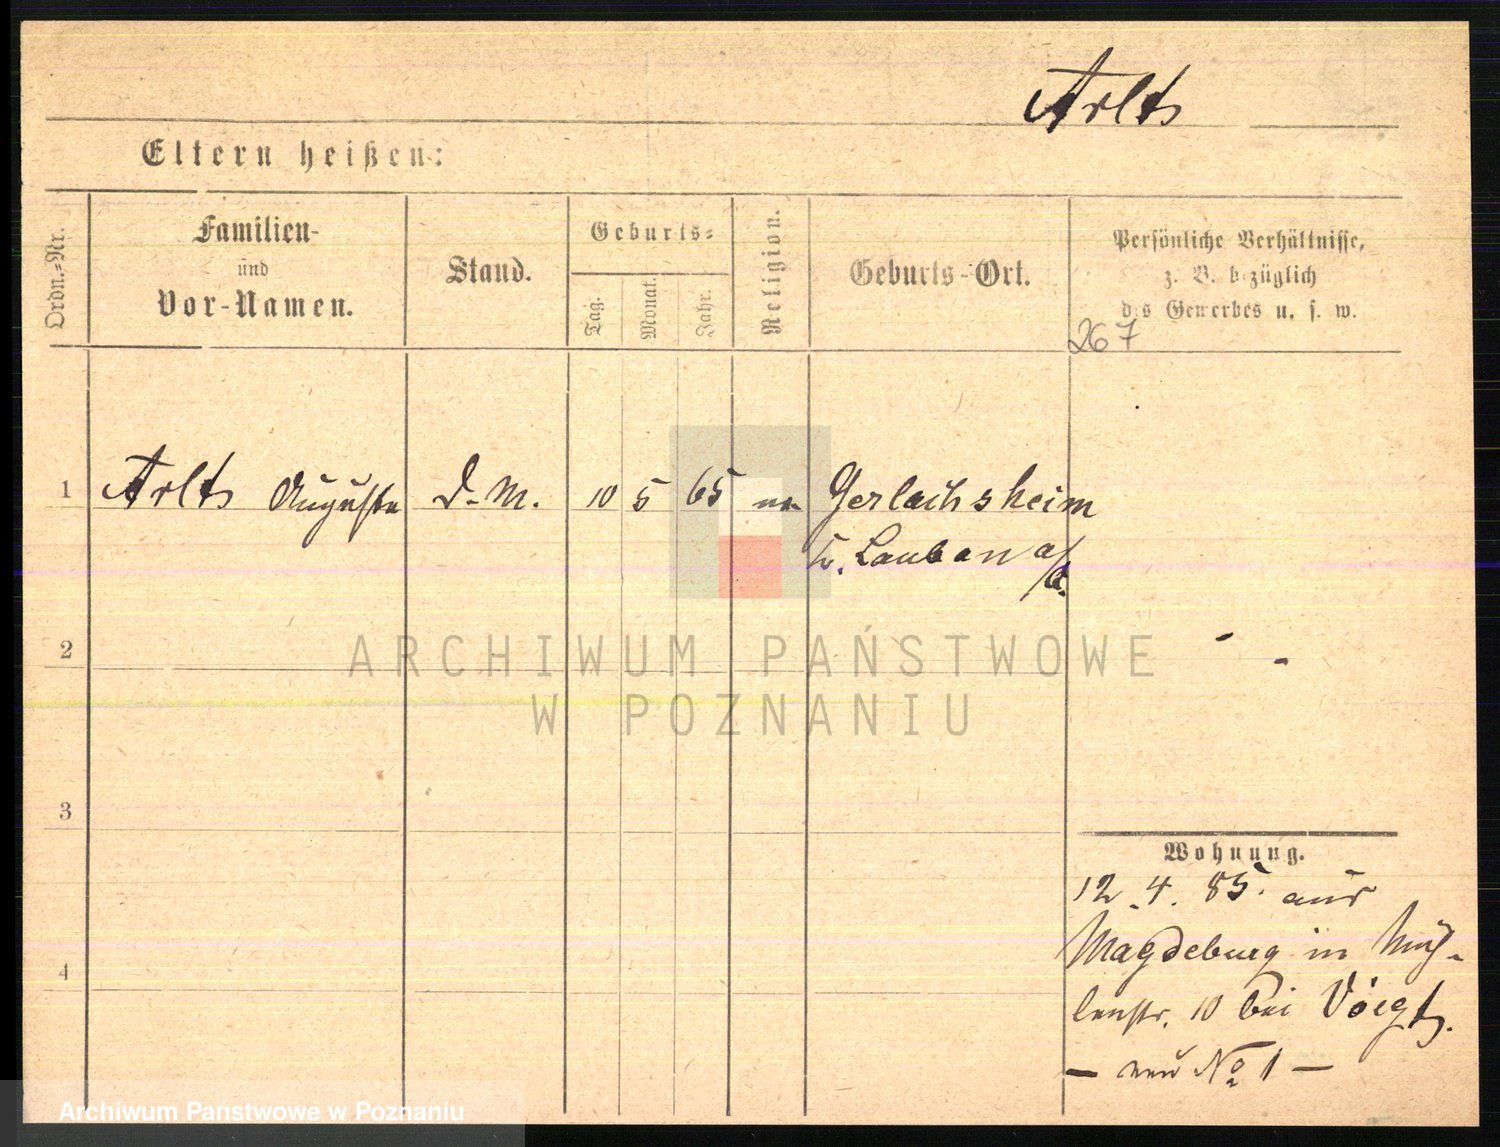 Arlt
Eltern heißen:
Ordn.-Nr.
Familien-
und
Vor-Namen.
Stand.
Geburts-
Tag.
Monat.
Jahr.
Religion.
Geburts-Ort.
Persönliche Verhältnisse,
z. B. bezüglich
des Gewerbes u. s. w.
267
1 Arlt Auguste D. M. 10 5 65 ev Gerlachsheim
b. Lauban a/
2
3
4
Wohnung.
12.4.85. aus
Magdeburg in Müh-
lenstr. 10 bei Voigt.
— neu No 1 —
ARCHIWUM PAŃSTWOWE
W POZNANIU
Archiwum Państwowe w Poznaniu